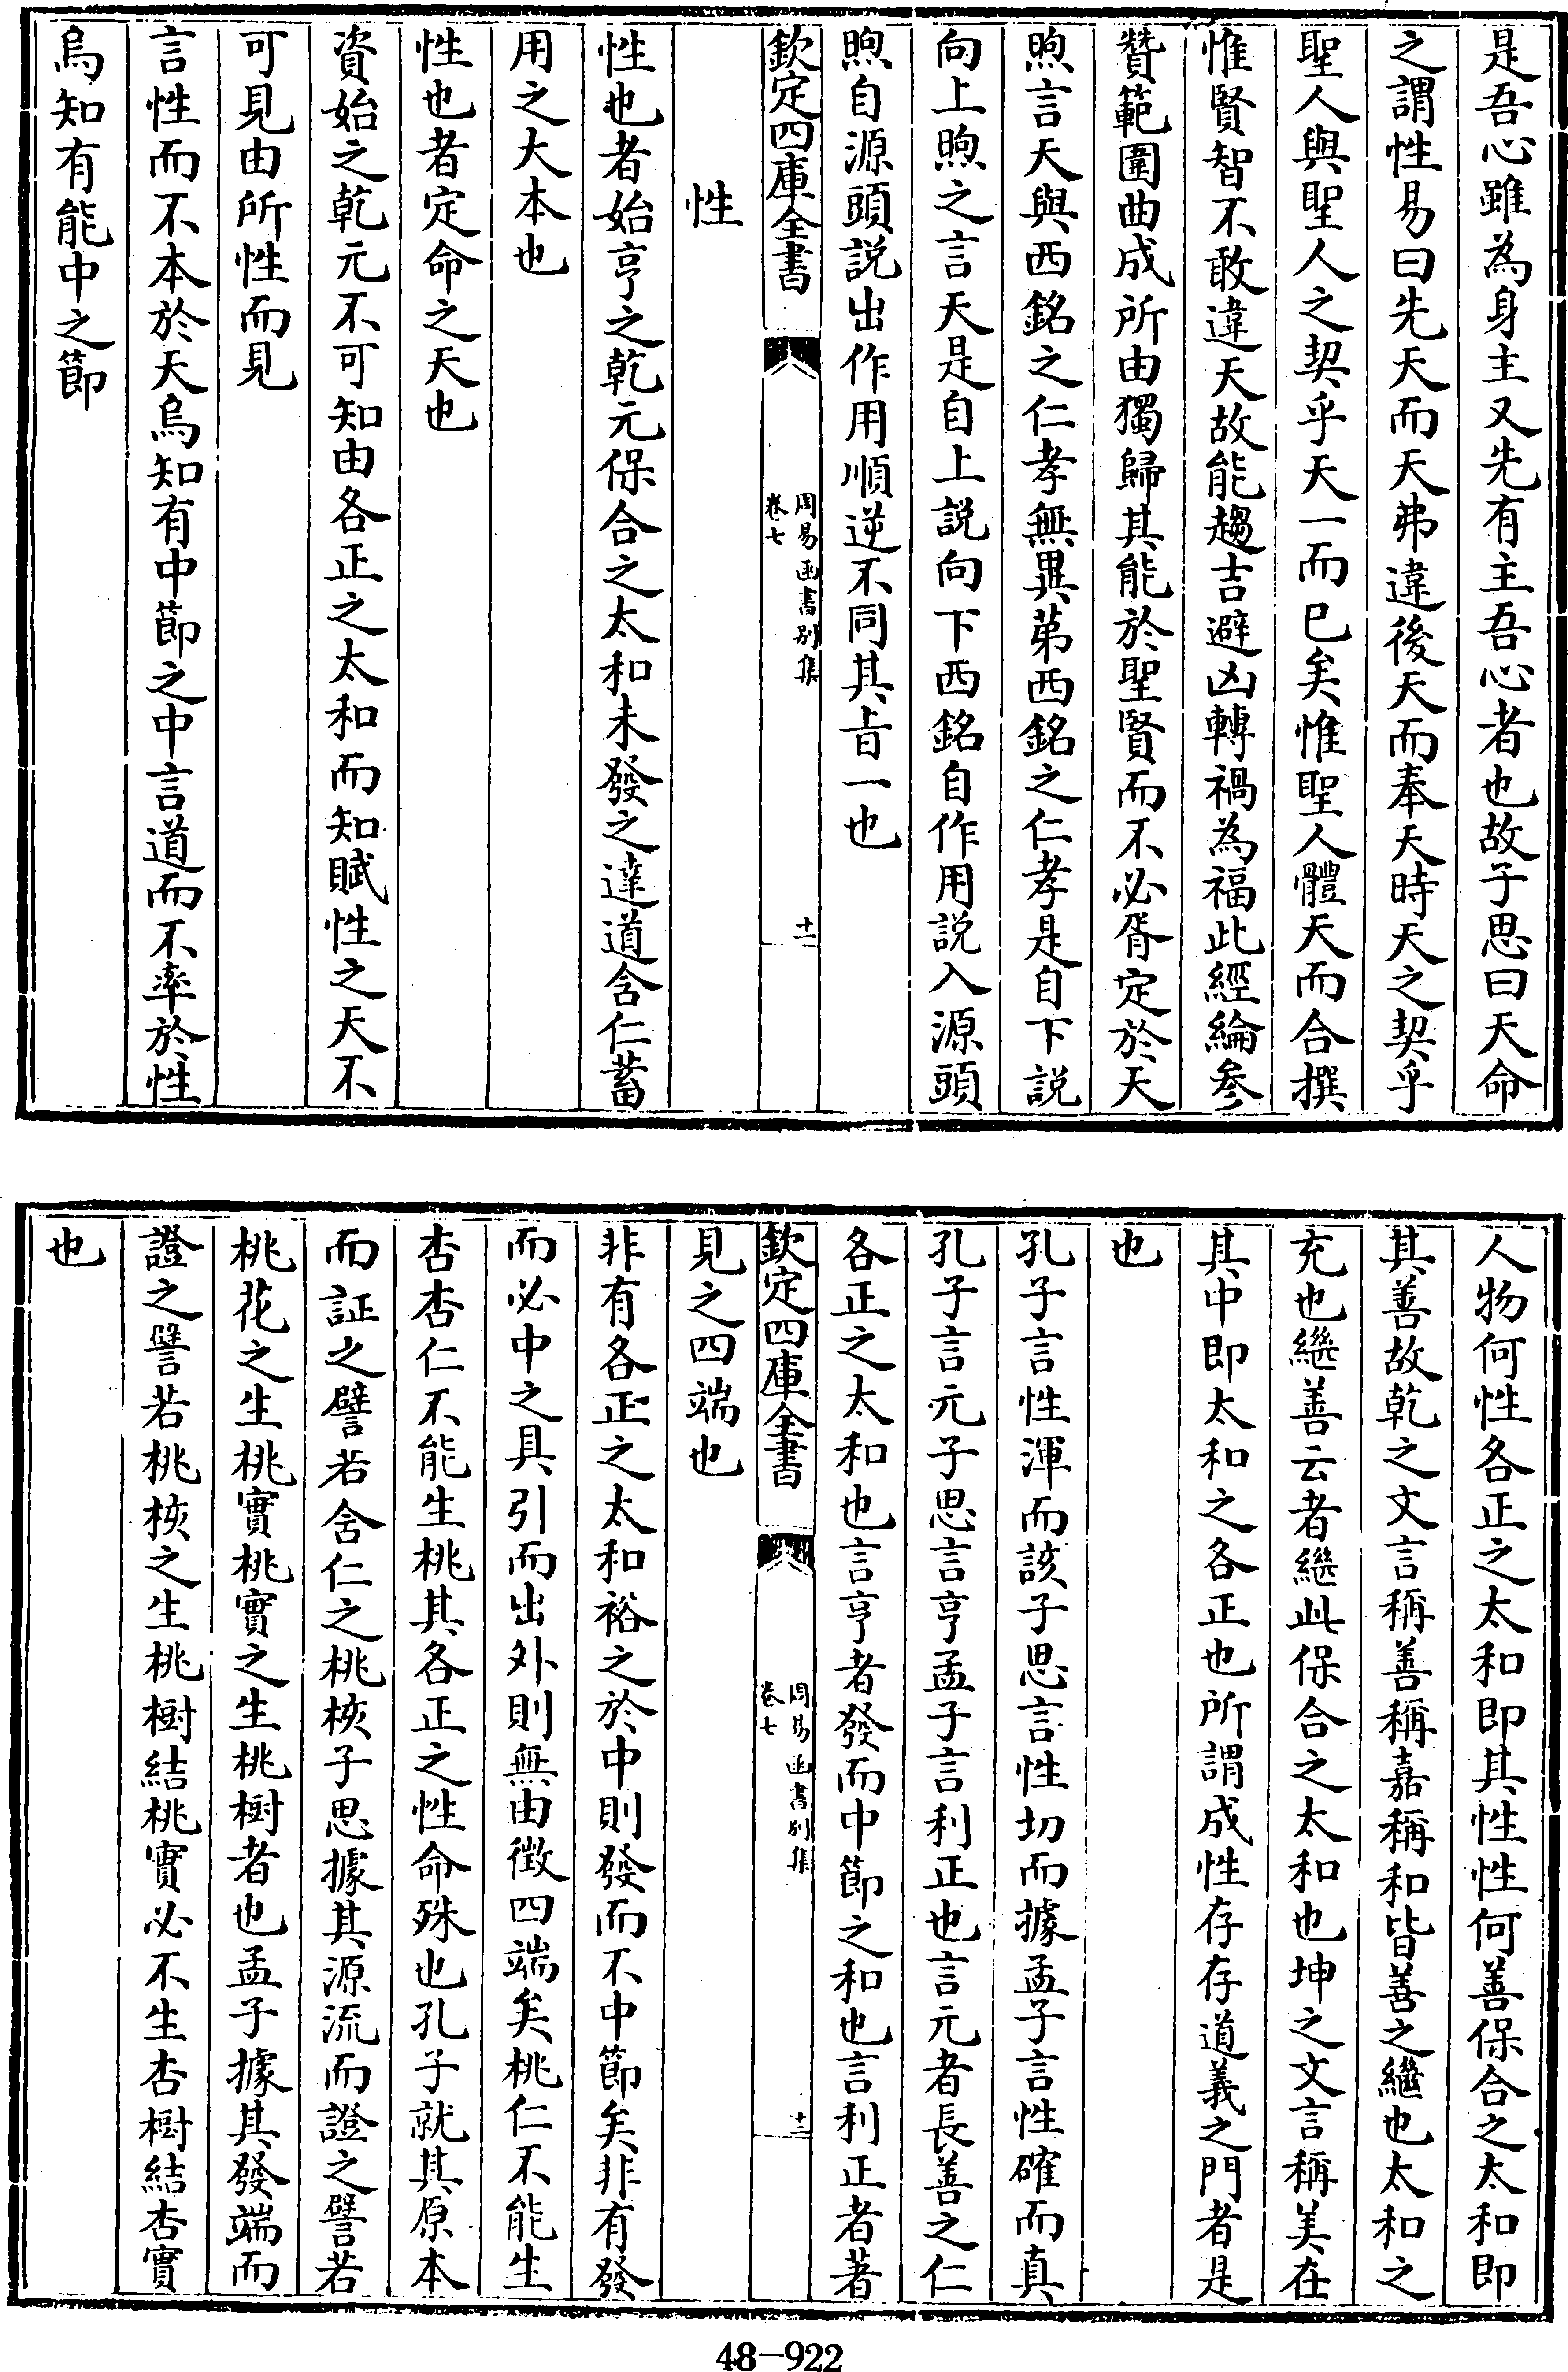 是吾心雖為身主又先有主吾心者也故子思曰天命
之謂性易曰先天而天弗違後天而奉天時天之契乎
聖人與聖人之契乎天一而已矣惟聖人體天而合撰
惟賢智不敢違天故能趨吉避凶轉禍為福此經綸參
贊範圍曲成所由獨歸其能於聖賢而不必胥定於天
煦言天與西銘之仁孝無異第西銘之仁孝是自下說
向上煦之言天是自上說向下西銘自作用說入源頭
煦自源頭說出作用順逆不同其㫖一也
欽定四庫全書
周易函書別集
卷七
十一
性
性也者始亨之乾元保合之太和未發之達道含仁蓄
用之大本也
性也者定命之天也
資始之乾元不可知由各正之太和而知賦性之天不
可見由所性而見
言性而不本於天烏知有中節之中言道而不率於性
烏知有能中之節
人物何性各正之太和即其性性何善保合之太和即
其善故乾之文言稱善稱嘉稱和皆善之繼也太和之
充也繼善云者繼此保合之太和也坤之文言稱美在
其中即太和之各正也所謂成性存存道義之門者是
也
孔子言性渾而該子思言性切而據孟子言性確而真
孔子言元子思言亨孟子言利正也言元者長善之仁
各正之太和也言亨者發而中節之和也言利正者著
欽定四庫全書
周易函書別集
卷七
十二
見之四端也
非有各正之太和裕之於中則發而不中節矣非有發
而必中之具引而出外則無由徵四端矣桃仁不能生
杏杏仁不能生桃其各正之性命殊也孔子就其原本
而証之譬若含仁之桃核子思據其源流而證之譬若
桃花之生桃實桃實之生桃樹者也孟子據其發端而
證之譬若桃核之生桃樹結桃實必不生杏樹結杏實
也
48-922